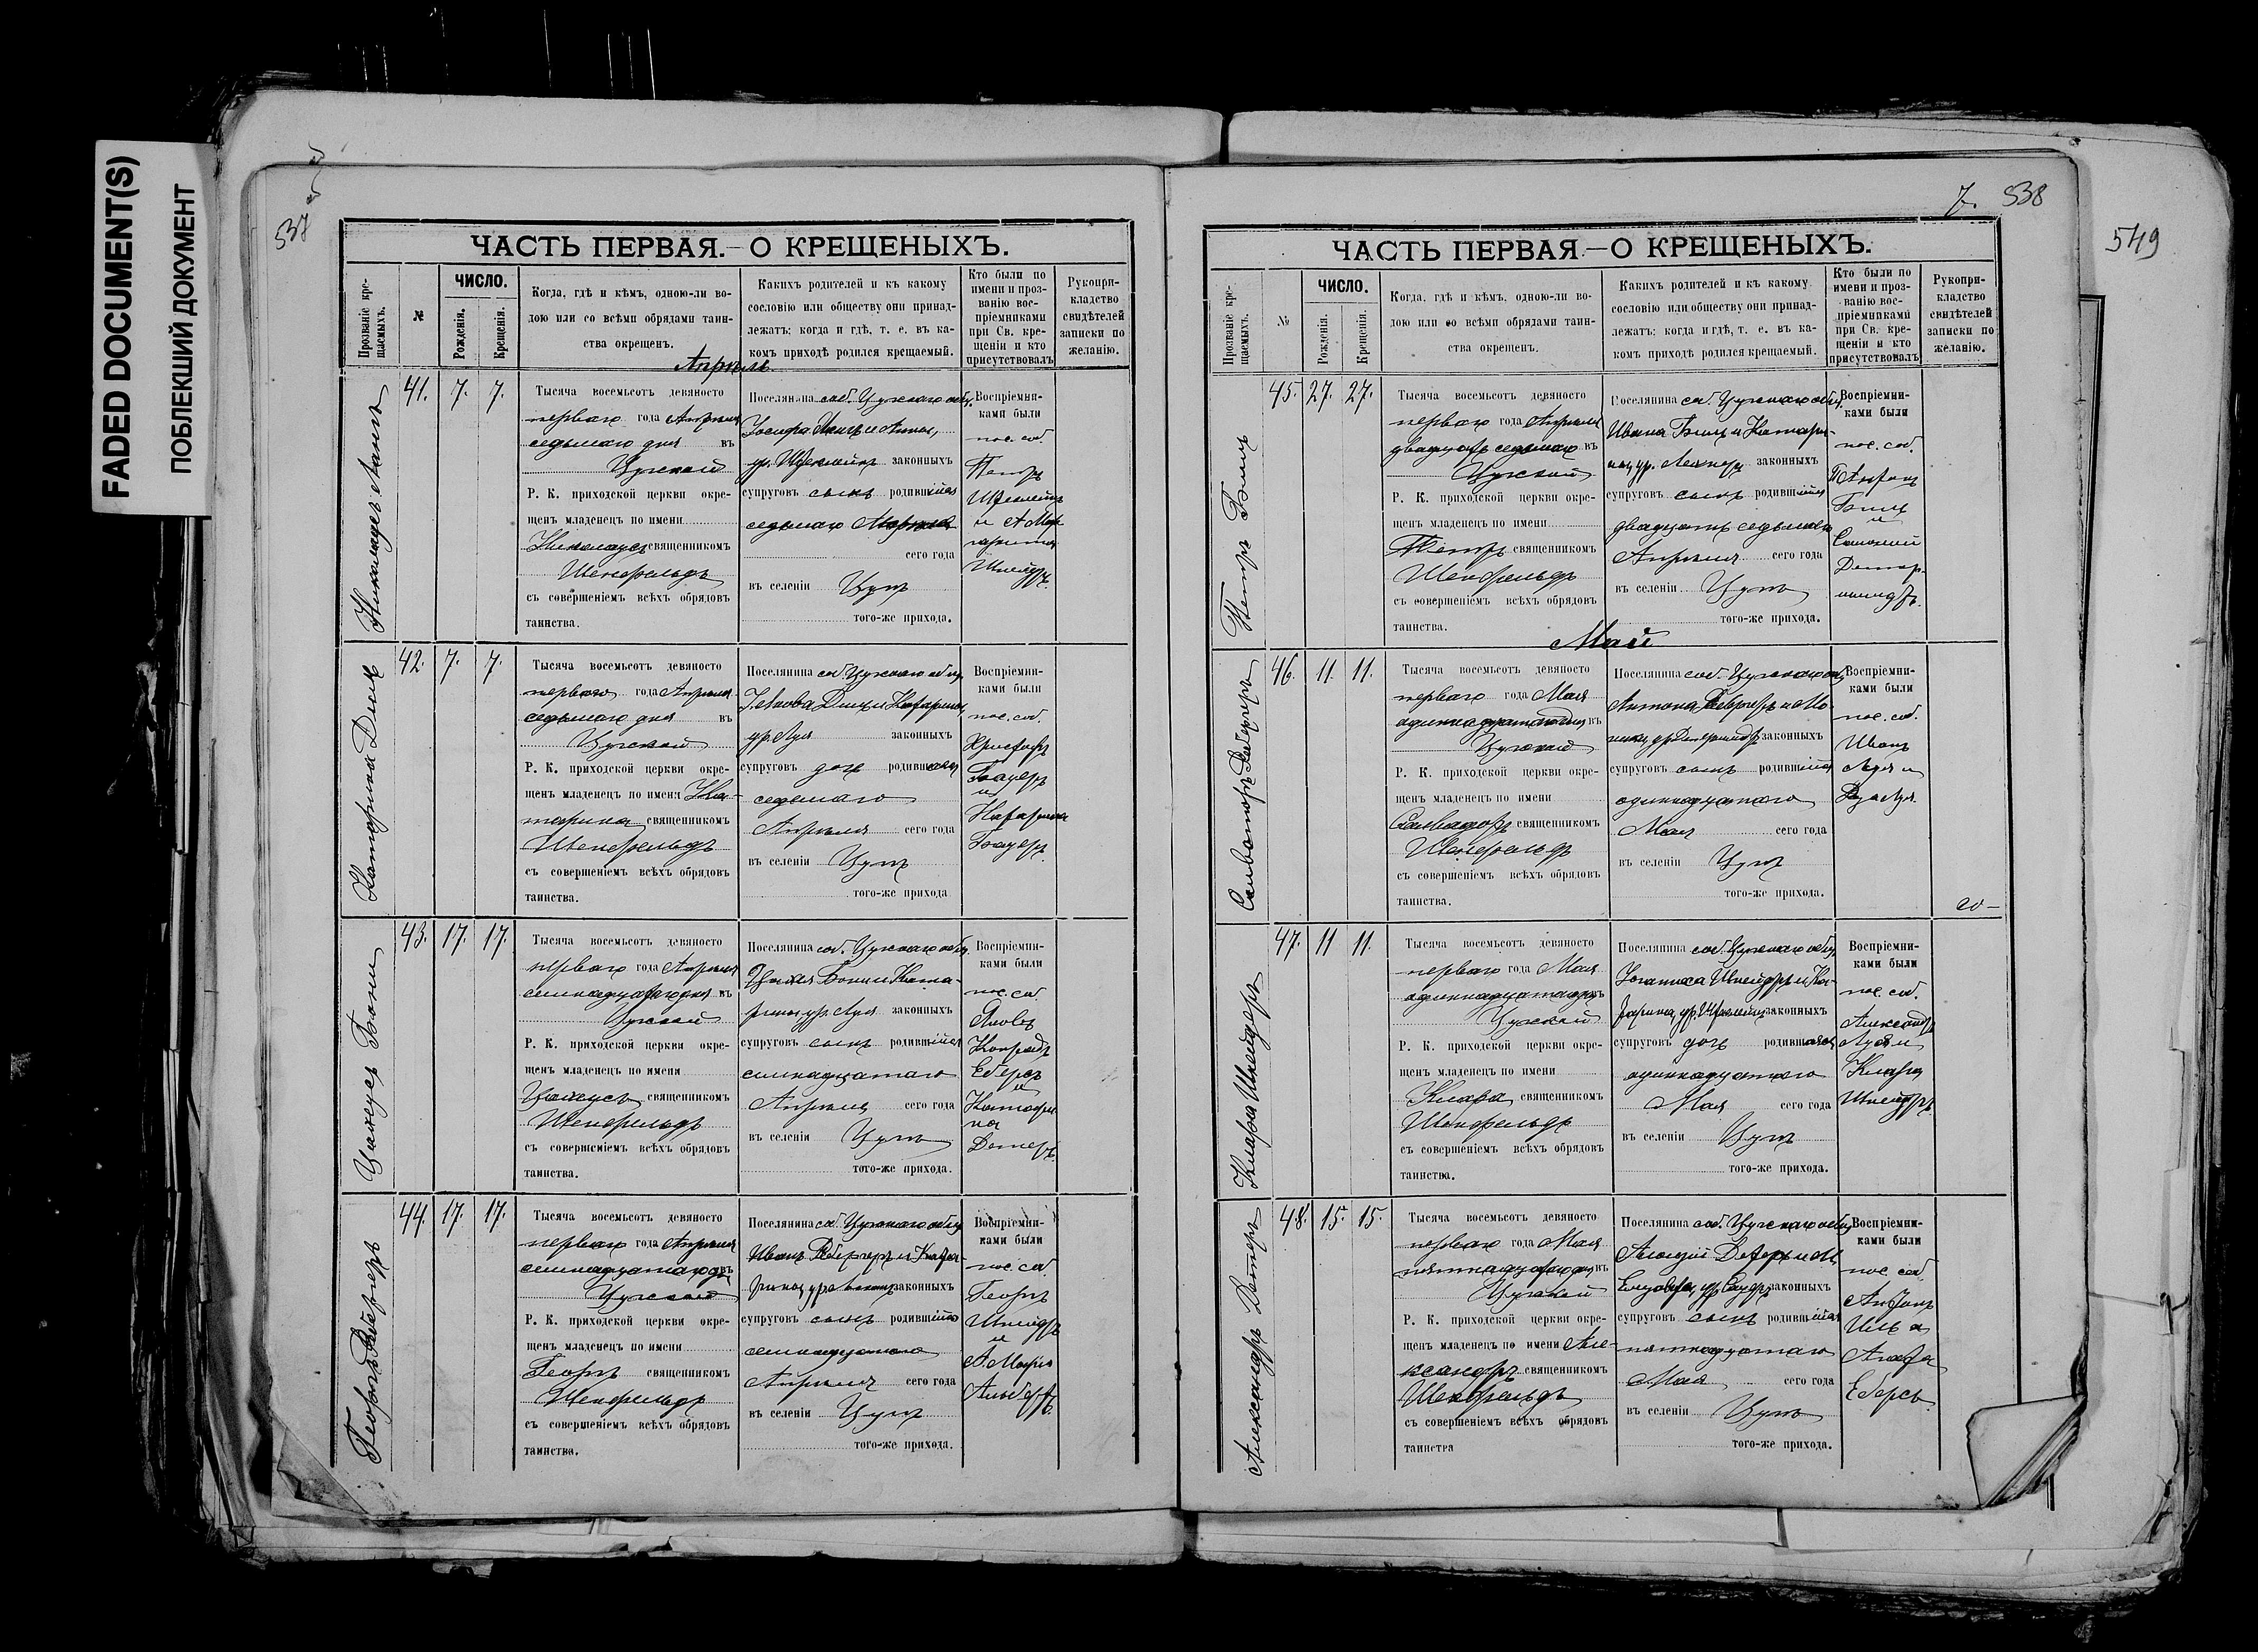 FADED DOCUMENT(S)
ПОБЛЕКШИЙ ДОКУМЕНТ
537
ЧАСТЬ ПЕРВАЯ.—О КРЕЩЕНЫХЪ.
Прозваніе кре-
щаемыхъ.
№
ЧИСЛО.
Рожденія.
Крещенія.
Когда, гдѣ и кѣмъ, одною-ли во-
дою или со всѣми обрядами таин-
ства окрещенъ.
Какихъ родителей и къ какому
сословію или обществу они принад-
лежатъ; когда и гдѣ, т. е. въ ка-
комъ приходѣ родился крещаемый.
Кто были по
имени и проз-
ванію вос-
пріемниками
при Св. кре-
щеніи и кто
присутствовалъ
Рукопри-
кладство
свидѣтелей
записки по
желанію.
Апрѣль
Николаусъ Лангъ
41. 7. 7.
Тысяча восемьсотъ девяносто
перваго года Апрѣля
седьмаго дня въ
Цугской
Р. К. приходской церкви окре-
щенъ младенецъ по имени
Николаусъ священникомъ
Шенфельдъ
съ совершеніемъ всѣхъ обрядовъ
таинства.
Поселянина соб. Цугскаго общ.
Іосифа Лангъ и Анны,
ур. законныхъ
супруговъ сынъ родившійся
седьмаго Апрѣля
сего года
въ селеніи Цугъ
того-же прихода.
Воспріемни-
ками были
пос. соб.
Петръ
и А. Мар-
гарита
Шнейдръ.
Катарина Дицъ
42. 7. 7.
Тысяча восемьсотъ девяносто
перваго года Апрѣля
седьмаго дня въ
Цугской
Р. К. приходской церкви окре-
щенъ младенецъ по имени Ка-
тарина священникомъ
Шенфельдъ
съ совершеніемъ всѣхъ обрядовъ
таинства.
Поселянина соб. Цугскаго общ.
Якова Дицъ и Катарины,
ур. Луя законныхъ
супруговъ дочь родившаяся
седьмаго
Апрѣля сего года
въ селеніи Цугъ
того-же прихода
Воспріемни-
ками были
пос. соб.
Христофъ
Бауеръ
и
Катарина
Бауеръ.
43. 17. 17.
Тысяча восемьсотъ девяносто
перваго года Апрѣля
семнадцатаго дня въ
Цугской
Р. К. приходской церкви окре-
щенъ младенецъ по имени
священникомъ
Шенфельдъ
съ совершеніемъ всѣхъ обрядовъ
таинства.
Поселянина соб. Цугскаго общ.
и Ката-
рины, ур. Луя законныхъ
супруговъ сынъ родившійся
семнадцатаго
Апрѣля сего года
въ селеніи Цугъ
того-же прихода.
Воспріемни-
ками были
пос. соб.
Яковъ
Конрадъ
Ебергъ
и
Катари-
на
Детеръ.
44. 17. 17.
Тысяча восемьсотъ девяносто
перваго года Апрѣля
семнадцатаго дн. въ
Цугской
Р. К. приходской церкви окре-
щенъ младенецъ по имени
Георгъ священникомъ
Шенфельдъ
съ совершеніемъ всѣхъ обрядовъ
таинства.
Поселянина соб. Цугскаго общ.
Иванъ и Ката-
рины, ур. законныхъ
супруговъ сынъ родившійся
семнадцатаго
Апрѣля сего года
въ селеніи Цугъ
того-же прихода.
Воспріемни-
ками были
пос. соб.
Георгъ
Шнейдръ
и
А. Марія
7. 538
549
ЧАСТЬ ПЕРВАЯ.—О КРЕЩЕНЫХЪ.
Прозваніе кре-
щаемыхъ.
№
ЧИСЛО.
Рожденія.
Крещенія.
Когда, гдѣ и кѣмъ, одною-ли во-
дою или со всѣми обрядами таин-
ства окрещенъ.
Какихъ родителей и къ какому
сословію или обществу они принад-
лежатъ; когда и гдѣ, т. е. въ ка-
комъ приходѣ родился крещаемый.
Кто были по
имени и проз-
ванію вос-
пріемниками
при Св. кре-
щеніи и кто
присутствовалъ
Рукопри-
кладство
свидѣтелей
записки по
желанію.
Петръ Бицъ
45. 27. 27.
Тысяча восемьсотъ девяносто
перваго года Апрѣля
двадцать седьмаго въ
Цугской
Р. К. приходской церкви окре-
щенъ младенецъ по имени
Петръ священникомъ
Шенфельдъ
съ совершеніемъ всѣхъ обрядовъ
таинства.
Поселянина соб. Цугскаго общ.
Ивана Бицъ и Катари-
ны, ур. законныхъ
супруговъ сынъ родившійся
двадцать седьмаго
Апрѣля сего года
въ селеніи Цугъ
того-же прихода.
Воспріемни-
ками были
пос. соб.
Антонъ
Бицъ
и
Май
46. 11. 11.
Тысяча восемьсотъ девяносто
перваго года Мая
одиннадцатаго дня въ
Цугской
Р. К. приходской церкви окре-
щенъ младенецъ по имени
Сальвадоръ священникомъ
Шенфельдъ
съ совершеніемъ всѣхъ обрядовъ
таинства.
Поселянина соб. Цугскаго общ.
Антона и Мо-
ники, ур. законныхъ
супруговъ сынъ родившійся
одиннадцатаго
Мая сего года
въ селеніи Цугъ
того-же прихода.
Воспріемни-
ками были
пос. соб.
Иванъ
Луя и
Клара Шнейдеръ
47. 11 11.
Тысяча восемьсотъ девяносто
перваго года Мая
одиннадцатаго дн. въ
Цугской
Р. К. приходской церкви окре-
щенъ младенецъ по имени
Клара священникомъ
Шенфельдъ
съ совершеніемъ всѣхъ обрядовъ
таинства.
Поселянина соб. Цугскаго общ.
Іоганнеса Шнейдръ и Ка-
тарина, ур. законныхъ
супруговъ дочь родившаяся
одиннадцатаго
Мая сего года
въ селеніи Цугъ
того-же прихода.
Воспріемни-
ками были
пос. соб.
Александръ
Луя и
Клара
Шнейдръ.
Александръ Детеръ
48. 15. 15.
Тысяча восемьсотъ девяносто
перваго года Мая
пятнадцатаго дня въ
Цугской
Р. К. приходской церкви окре-
щенъ младенецъ по имени Але-
ксандръ священникомъ
Шенфельдъ
съ совершеніемъ всѣхъ обрядовъ
таинства
Поселянина соб. Цугскаго общ.
Алоизій Детеръ и М.
законныхъ
супруговъ сынъ родившійся
пятнадцатаго
Мая сего года
въ селеніи Цугъ
того-же прихода.
Воспріемни-
ками были
пос. соб.
Антонъ
и
Агата
Ебергъ.